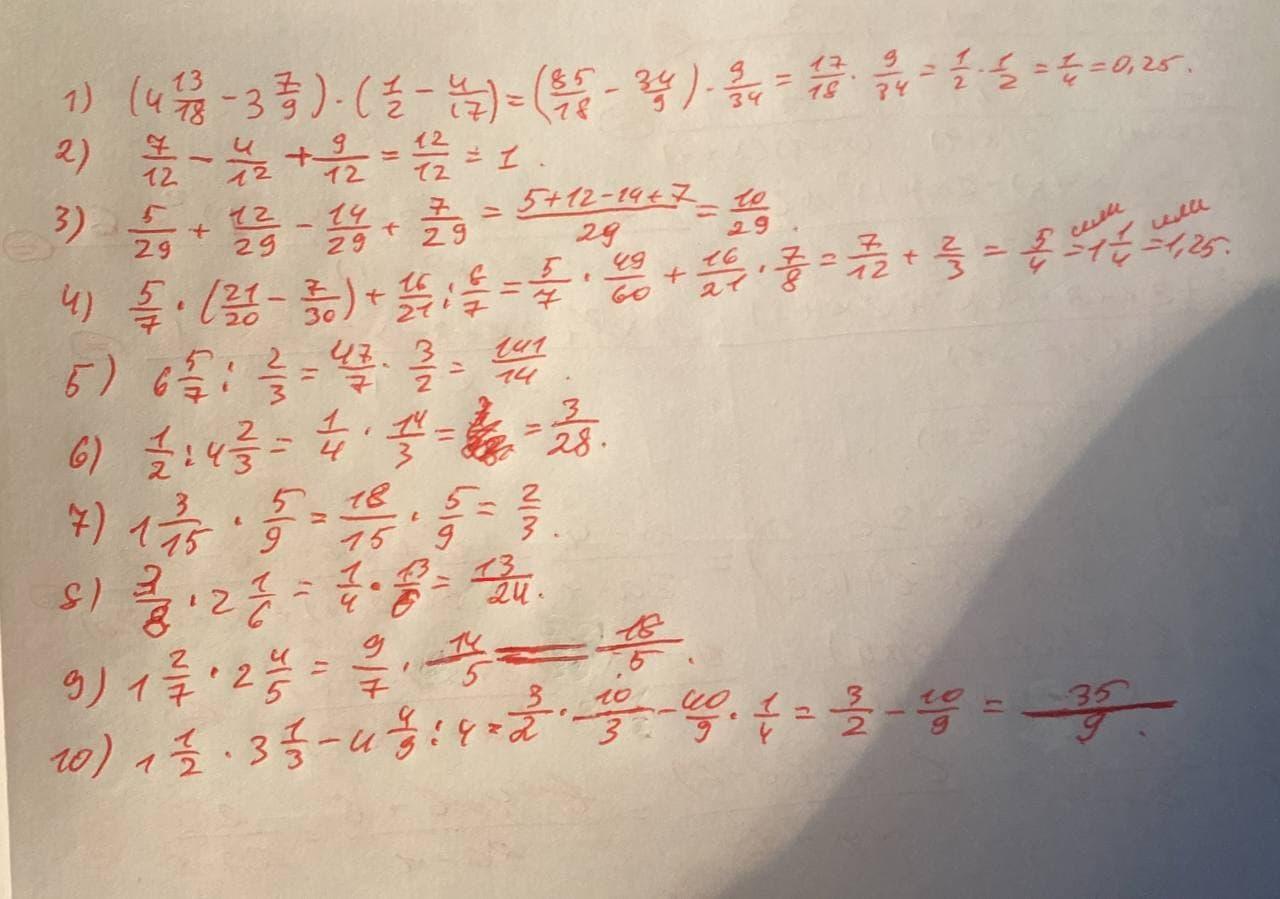 1) (4 13/18 - 3 7/9) · (1/2 - 4/17) = (85/18 - 34/9) · 9/34 = 17/18 · 9/34 = 1/2 · 1/2 = 1/4 = 0,25.
2) 7/12 - 4/12 + 9/12 = 12/12 = 1.
3) 5/29 + 12/29 - 14/29 + 7/29 = (5+12-14+7)/29 = 10/29.
4) 5/7 · (21/20 - 7/30) + 16/21 : 6/7 = 5/7 · 49/60 + 16/21 · 7/8 = 7/12 + 2/3 = 5/4 или = 1 1/4 или = 1,25.
5) 6 5/7 : 2/3 = 47/7 · 3/2 = 141/14.
6) 1/2 : 4 2/3 = 1/4 · 14/3 = = 3/28.
7) 1 3/15 · 5/9 = 18/15 · 5/9 = 2/3.
8) 2/8 · 2 1/6 = 1/4 · 13/6 = 13/24.
9) 1 2/7 · 2 4/5 = 9/7 · 14/5 = 18/5.
10) 1 1/2 · 3 1/3 - 4 4/9 : 4 = 3/2 · 10/3 - 40/9 · 1/4 = 3/2 - 10/9 = 35/9.